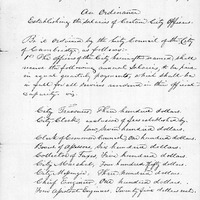 An Ordinance
Establishing the salaries of Certain City Officers.
Be it Ordained by the City Council of the City
of Cambridge, as follows:
1st The officers of the City hereinafter named shall
receive the following annual Salaries, to be paid
in equal quarterly payments, which shall be
in full for all services rendered in their official
capacity, viz.
City Treasurer, Three hundred dollars.
City Clerk, exclusive of fees established by
law, hundred dollars.
Clerk of Common Council, One hundred dollars.
Board of Assessors, Six hundred dollars.
Collector of Taxes, Four hundred dollars.
City Marshal, Four hundred dollars.
City Messenger, Three hundred dollars.
Chief Engineer, One hundred dollars.
Four Assistant Engineers, Twenty five dollars each.